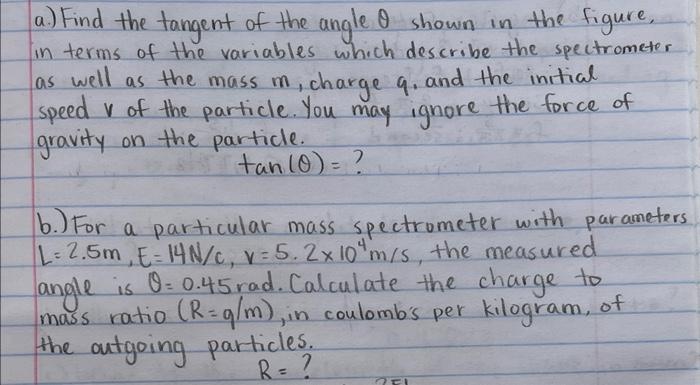 a.) Find the tangent of the angle θ shown in the figure,
in terms of the variables which describe the spectrometer
as well as the mass m, charge q, and the initial
speed v of the particle. You may ignore the force of
gravity on the particle.
tan(θ) = ?
b.) For a particular mass spectrometer with parameters
L= 2.5m, E= 14N/C, v= 5.2x10⁴m/s, the measured
angle is θ= 0.45rad. Calculate the charge to
mass ratio (R=q/m), in coulombs per kilogram, of
the outgoing particles.
R = ?